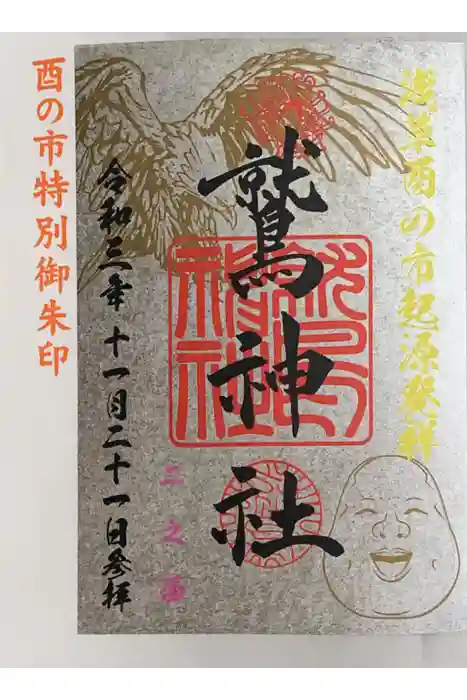 浅草酉の市起源発祥
鷲神社
二之酉
令和三年十一月二十一日参拝
酉の市特別御朱印